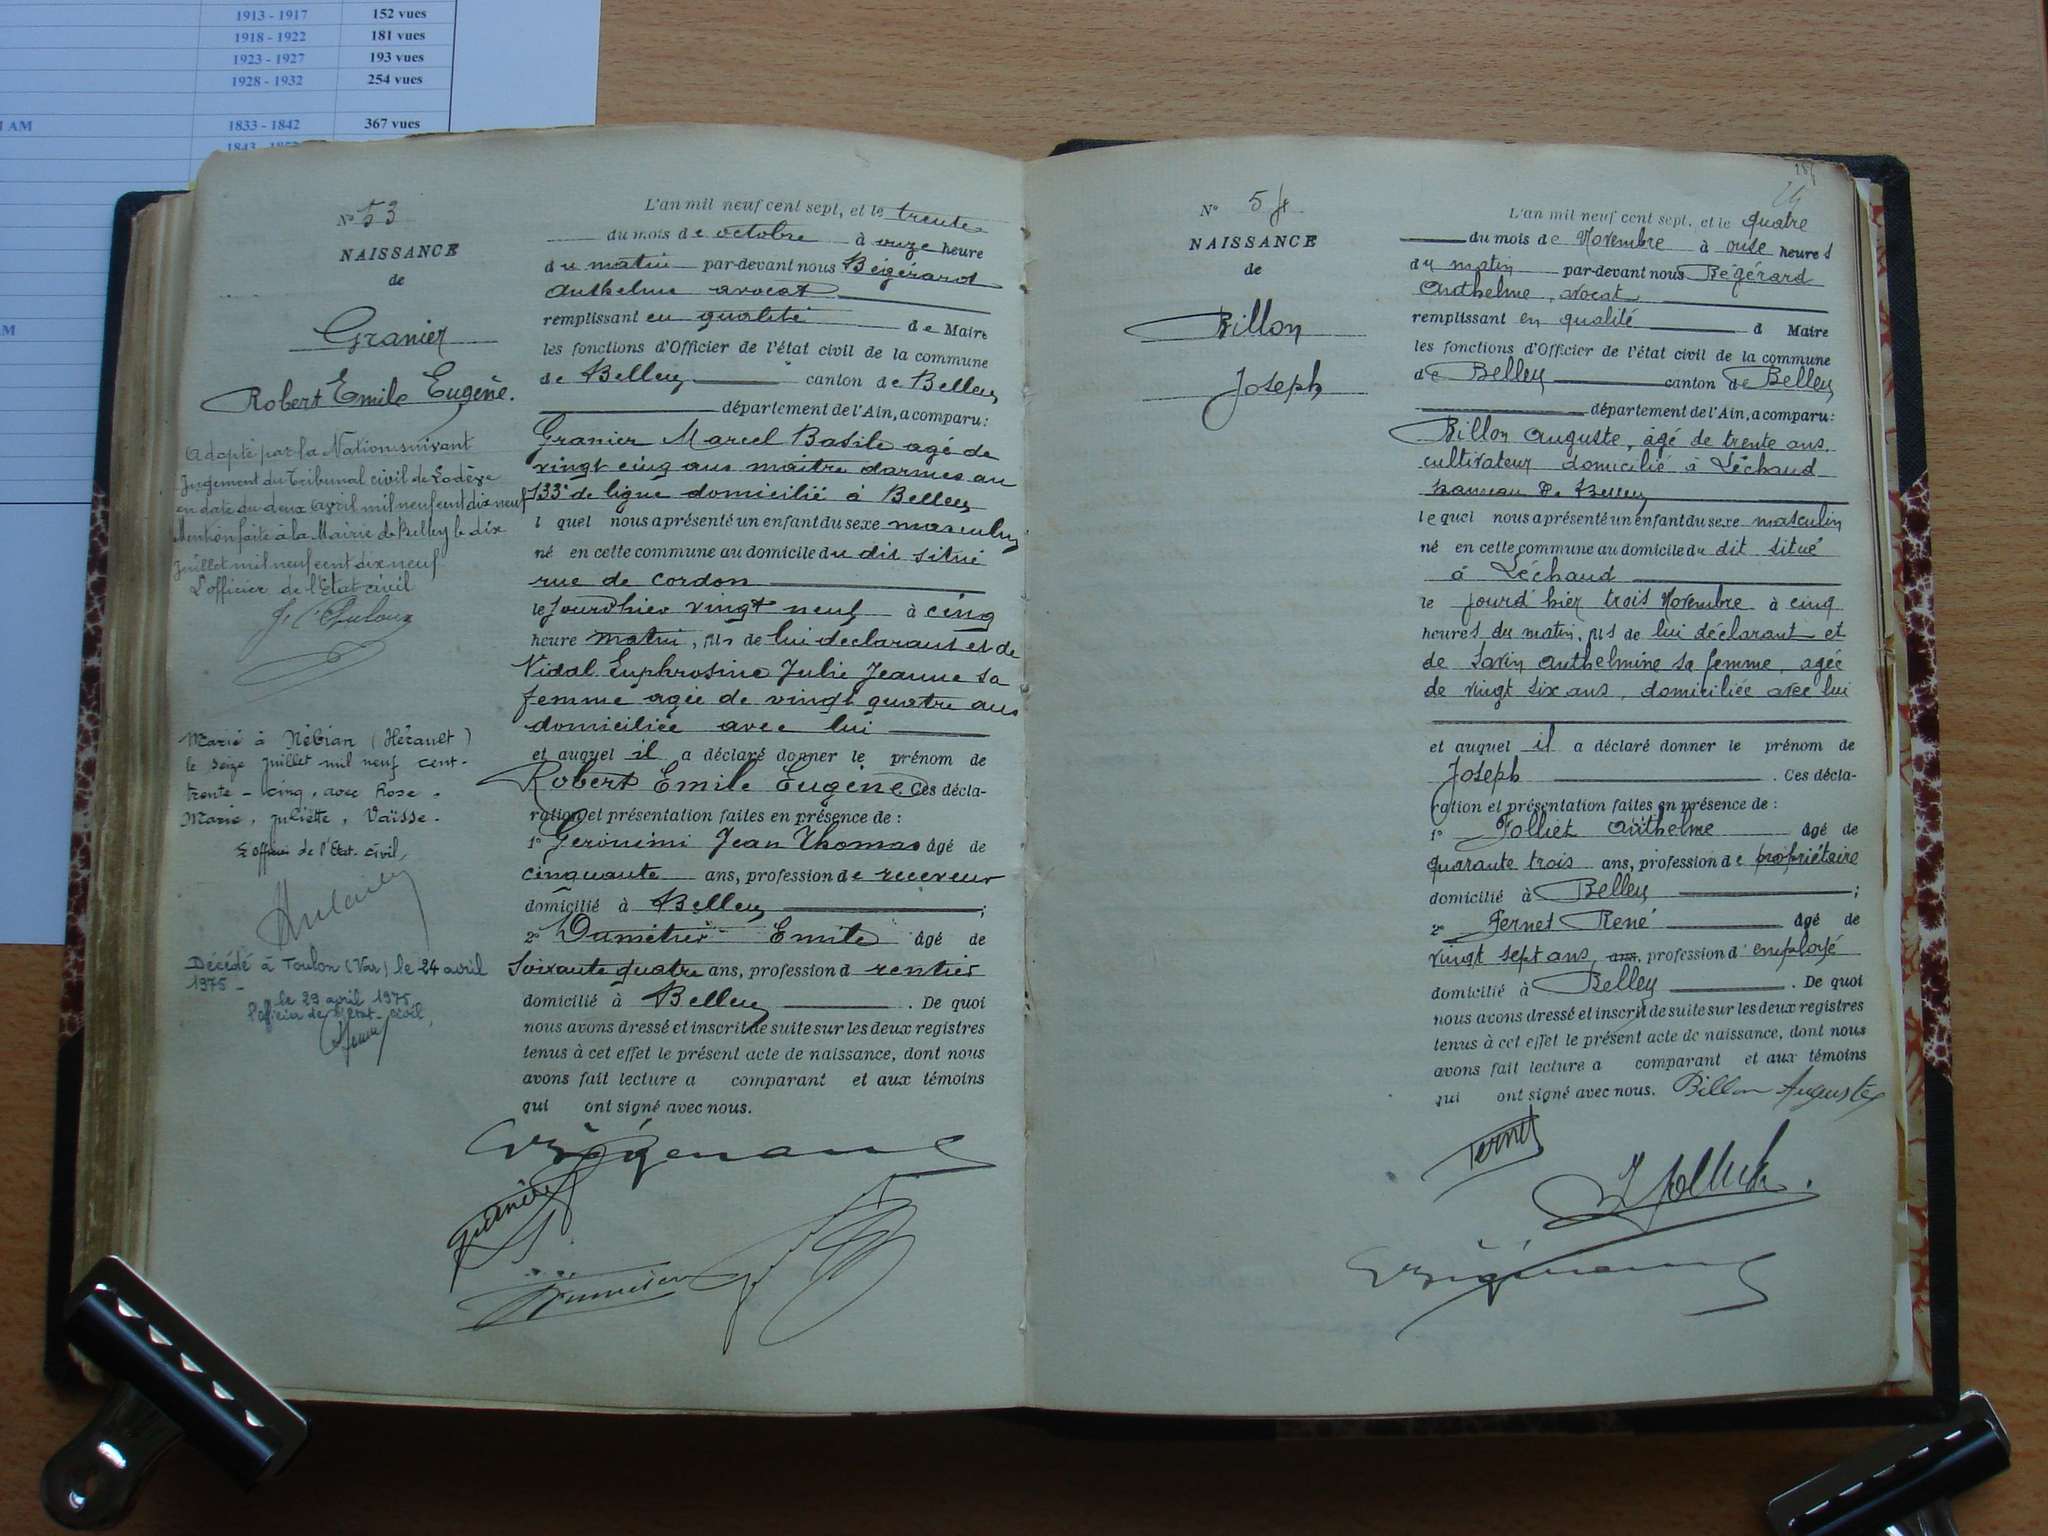 1913 - 1917 152 vues
1918 - 1922 181 vues
1923 - 1927 193 vues
1928 - 1932 254 vues
AM 1833 - 1842 367 vues
N° 53
NAISSANCE
de
Granier
Robert Emile Eugène.
Adopté par la Nation suivant
Jugement du Tribunal civil de Lodève
en date du deux avril mil neuf cent dix neuf
Mention faite à la Mairie de Belley le dix
Juillet mil neuf cent dix neuf
L'officier de l'Etat civil
Marié à Nébian (Hérault)
le seize juillet mil neuf cent-
trente-cinq, avec Rose-
Marie, Juliette, Vaïsse.
L'officier de l'Etat-civil,
Décédé à Toulon (Var) le 24 avril
1975-
le 29 avril 1975
l'officier de l'état-civil,
L'an mil neuf cent sept, et le trente
du mois de octobre à onze heure
du matin par-devant nous Bégérard
Anthelme avocat
remplissant en qualité de Maire
les fonctions d'Officier de l'état civil de la commune
de Belley canton de Belley
département de l'Ain, a comparu:
Granier Marcel Basile agé de
vingt cinq ans maître darmes au
133e de ligne domicilié à Belley
l quel nous a présenté un enfant du sexe masculin
né en cette commune au domicile du dit situé
rue de Cordon
le jourd'hier vingt neuf à cinq
heure matin, fils de lui déclarant et de
Vidal Euphrosine Julie Jeanne sa
femme agée de vingt quatre ans
domiciliée avec lui
et auquel il a déclaré donner le prénom de
Robert Emile Eugène Ces décla-
ration et présentation faites en présence de :
1° Geronimi Jean Thomas âgé de
cinquante ans, profession de receveur
domicilié à Belley ;
2° Dumétier Emile âgé de
soixante quatre ans, profession d rentier
domicilié à Belley . De quoi
nous avons dressé et inscrit de suite sur les deux registres
tenus à cet effet le présent acte de naissance, dont nous
avons fait lecture a comparant et aux témoins
qui ont signé avec nous.
N° 54
NAISSANCE
de
Billon
Joseph
L'an mil neuf cent sept, et le quatre
du mois de Novembre à onse heures
du matin par-devant nous Bégérard
Anthelme, avocat
remplissant en qualité d Maire
les fonctions d'Officier de l'état civil de la commune
de Belley canton de Belley
département de l'Ain, a comparu:
Billon Auguste, âgé de trente ans
cultivateur domicilié à Léchaud
hameau de Belley
lequel nous a présenté un enfant du sexe masculin
né en cette commune au domicile du dit situé
à Léchaud
le jourd'hier trois Novembre à cinq
heures du matin, fils de lui déclarant et
de Savin Anthelmine sa femme, agée
de vingt six ans, domiciliée avec lui
et auquel il a déclaré donner le prénom de
Joseph . Ces décla-
ration et présentation faites en présence de :
1° Jolliet Anthelme âgé de
quarante trois ans, profession de propriétaire
domicilié à Belley ;
2° Fernet René âgé de
vingt sept ans, ans, profession d'employé
domicilié à Belley . De quoi
nous avons dressé et inscrit de suite sur les deux registres
tenus à cet effet le présent acte de naissance, dont nous
avons fait lecture a comparant et aux témoins
qui ont signé avec nous. Billon Auguste
Fernet